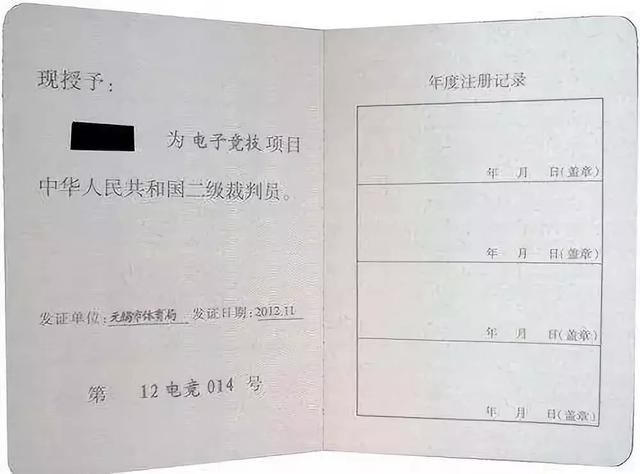 现授予：
为电子竞技项目
中华人民共和国二级裁判员。
发证单位:无锡市体育局 发证日期:2012.11
第 12电竞014 号
年度注册记录
年 月 日(盖章)
年 月 日(盖章)
年 月 日(盖章)
年 月 日(盖章)